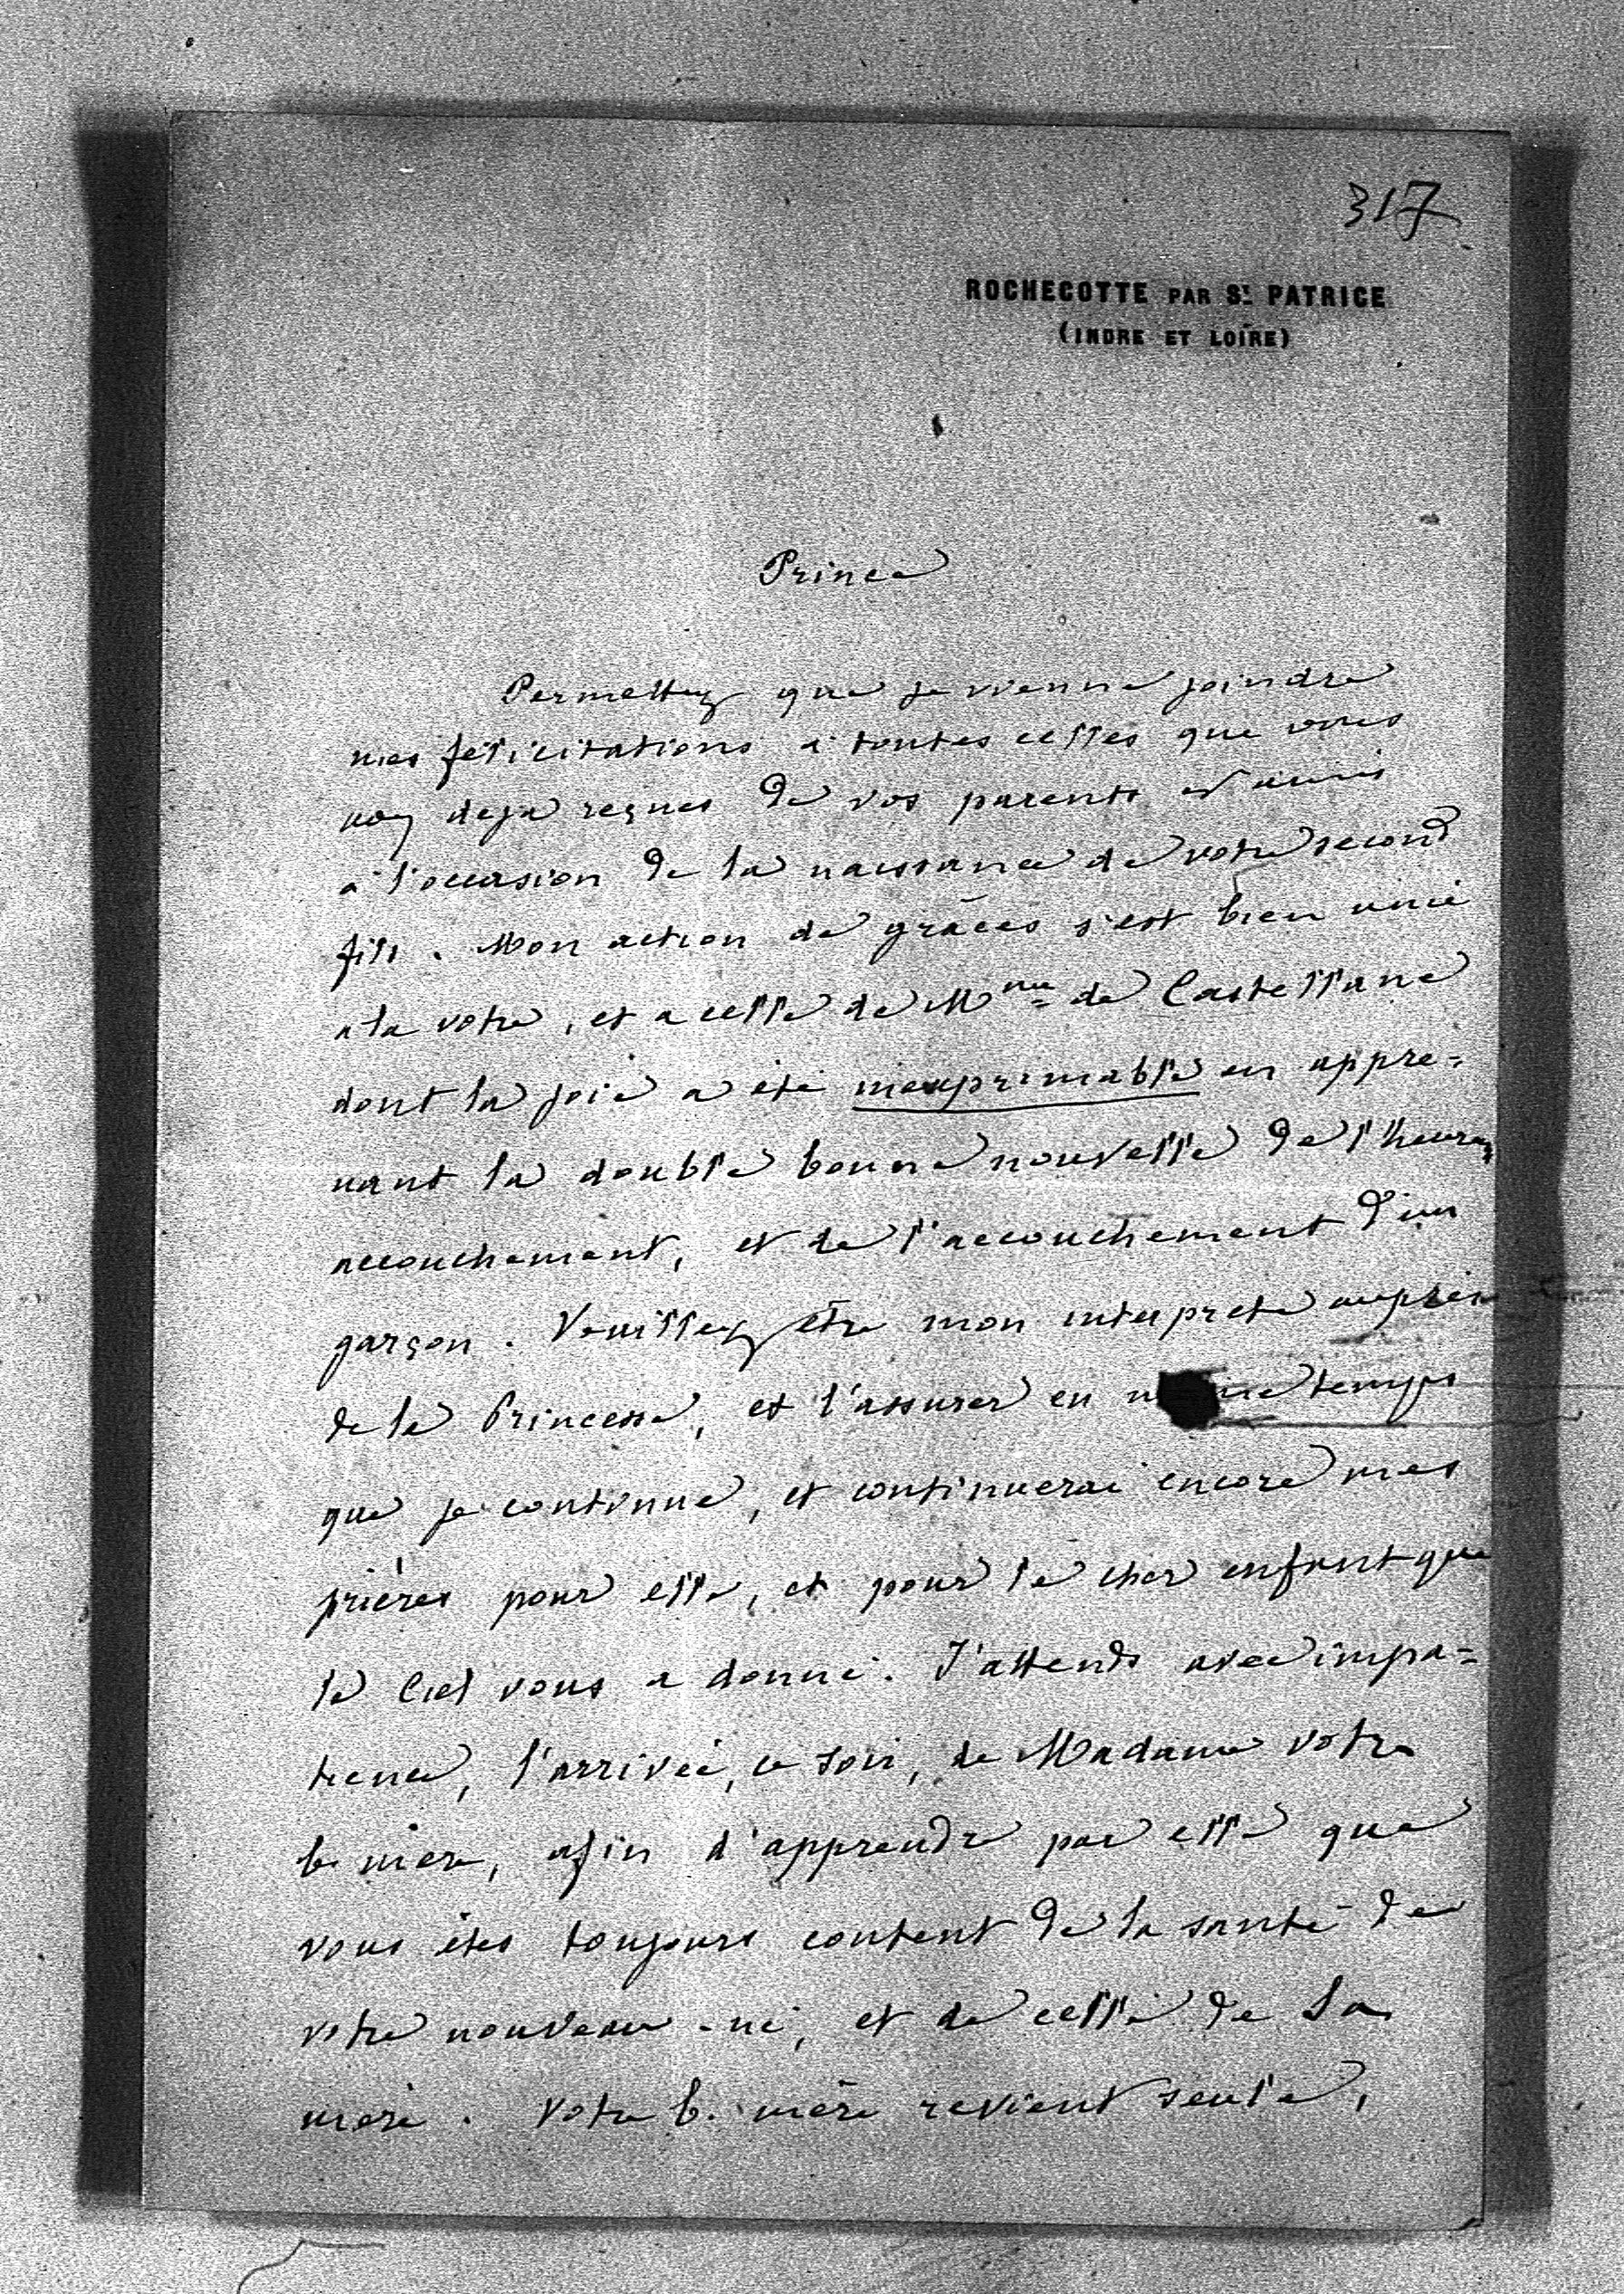 317
ROCHECOTTE PAR St. PATRICE
(INDRE ET LOIRE)
Prince
Permettez que je vienne joindre
mes félicitations à toutes celles que vous
avez deja reçues de vos parents et amis
à l'occasion de la naissance de votre second
fils. Mon action de grâces s'est bien unie
a la votre, et a celle de Mme de Castellane
dont la joie a été inexprimable en appre=
nant la double bonne nouvelle de l'heureux
accouchement, et de l'accouchement d'un
garçon. Veuillez être mon interprete auprès
de la Princesse, et l'assurer en même temps
que je continue, et continuerai encore mes
prières pour elle, et pour le cher enfant que
le Ciel vous a donné. J'attends avec impa=
tience, l'arrivée, ce soir, de Madame votre
b. mère, afin d'apprendre par elle que
vous êtes toujours content de la santé de
votre nouveau-né, et de celle de sa
mère. Votre b. mère revient seule,